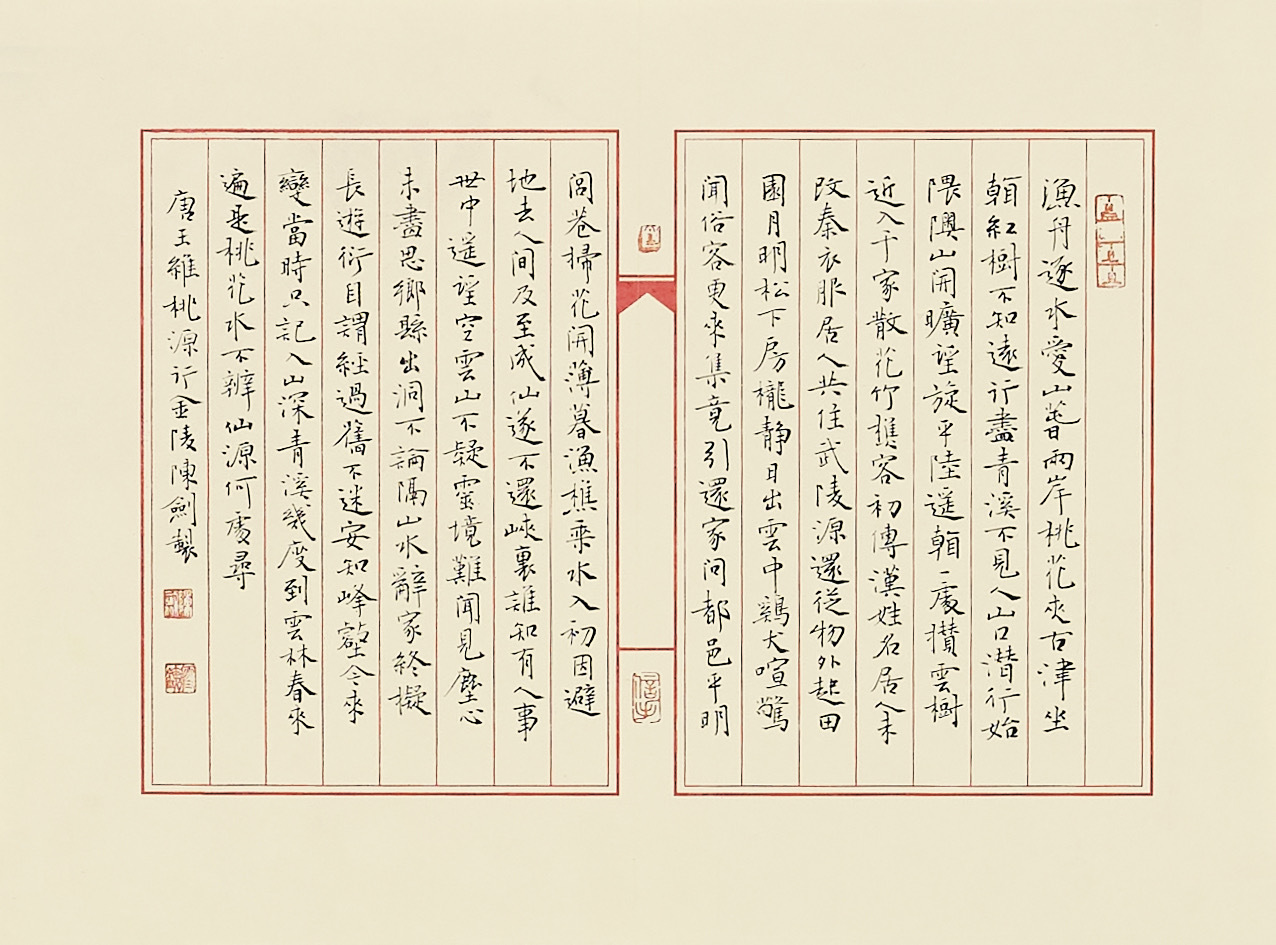 漁舟逐水愛山萅兩岸桃花夾古津坐
看紅樹不知遠行盡青溪不見人山口潛行始
隈隩山開曠望旋平陸遙看一處攢雲樹
近入千家散花竹樵客初傳漢姓名居人未
改秦衣服居人共住武陵源還從物外起田
園月明松下房櫳靜日出雲中鷄犬喧驚
聞俗客更來集竟引還家問都邑平明
閭巷掃花開薄暮漁樵乘水入初因避
地去人間及至成仙遂不還峽裏誰知有人事
世中遙望空雲山不疑靈境難聞見塵心
未盡思鄉縣出洞不論隔山水辭家終擬
長遊衍自謂經過舊不迷安知峰壑今來
變當時只記入山深青溪幾度到雲林春來
遍是桃花水不辨仙源何處尋
唐王維桃源行金陵陳劍製